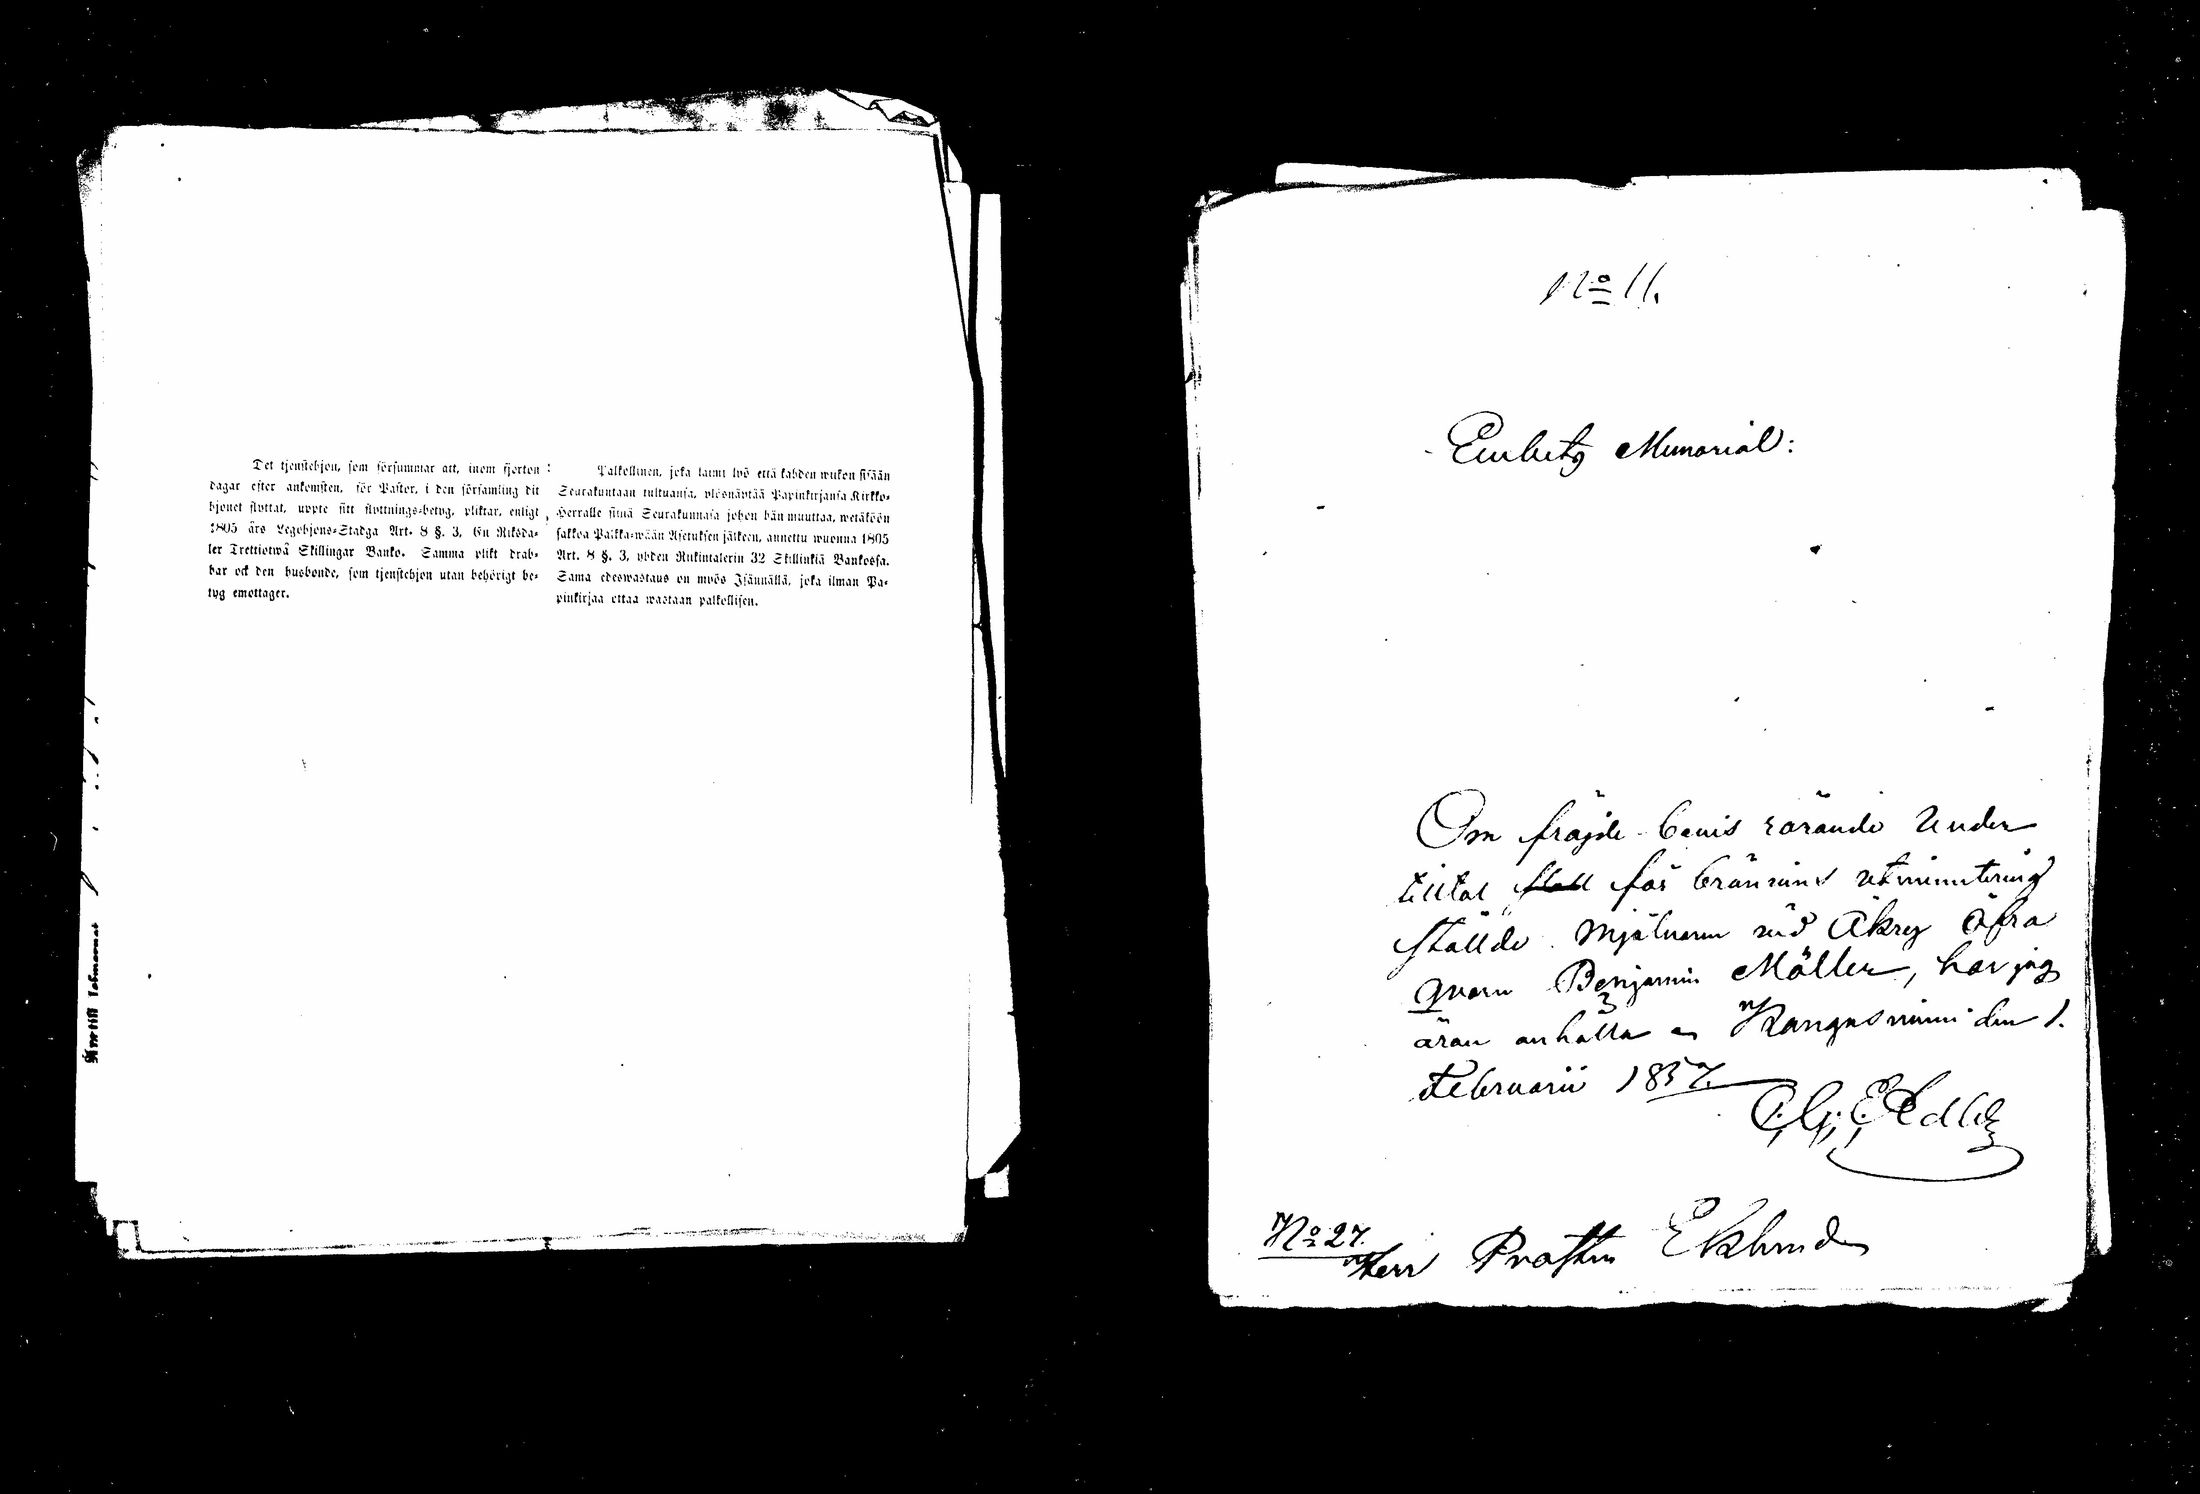 Det tjenstehjon, som försummar att, inom fjorton
dagar efter ankomsten, för Pastor, i den församling dit
hjonet flyttat, uppte sitt flyttnings-betyg, pliktar, enligt
1805 års Legohjons-Stadga Art. 8 §. 3, En Riksda-
ler Trettiotwå Skillingar Banko. Samma plikt drab-
bar ock den husbonde, som tjenstehjon utan behörigt be-
tyg emottager.
Palkollinen, joka laimi lyö että kahden wiikon sisään
Seurakuntaan tultuansa, ylösnäyttää Papinkirjansa Kirkko-
Herralle siinä Seurakunnasa johon hän muuttaa, wetäköön
sakkoa Palkka-wään Asetuksen jälkeen, annettu wuonna 1805
Art. 8 §. 3, yhden Rukintalerin 32 Skillinkiä Bankossa.
Sama edeswastaus on myös Isännällä, joka ilman Pa-
pinkirjaa ottaa wastaan palkollisen.
No 11.
Embets Memorial:
Om fräjde-bevis rörande Under
tilltal för bränvins utminutering
ställde Mjölnaren vid Åkry öfra
qvarn Benjamin Möller, har jag
äran anhålla Kangasniemi den 1.
Februarii 1857.
No 27.
Herr Prosten Eklund